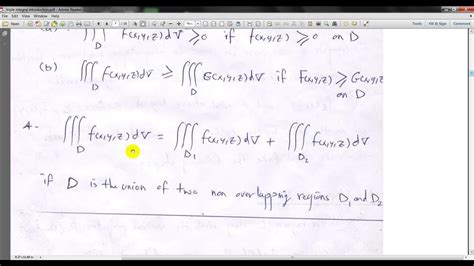 triple integral introduction.pdf - Adobe Reader
File Edit View Window Help
Tools Sign Comment
∭_D f(x,y,z) dV ⩾ 0 if f(x,y,z) ⩾ 0 on D
(b) ∭_D F(x,y,z) dV ⩾ ∭_D G(x,y,z) dV if F(x,y,z) ⩾ G(x,y,z)
on D
4- ∭_D f(x,y,z) dV = ∭_D₁ f(x,y,z) dV + ∭_D₂ f(x,y,z) dV
if D is the union of two non overlapping regions D₁ and D₂